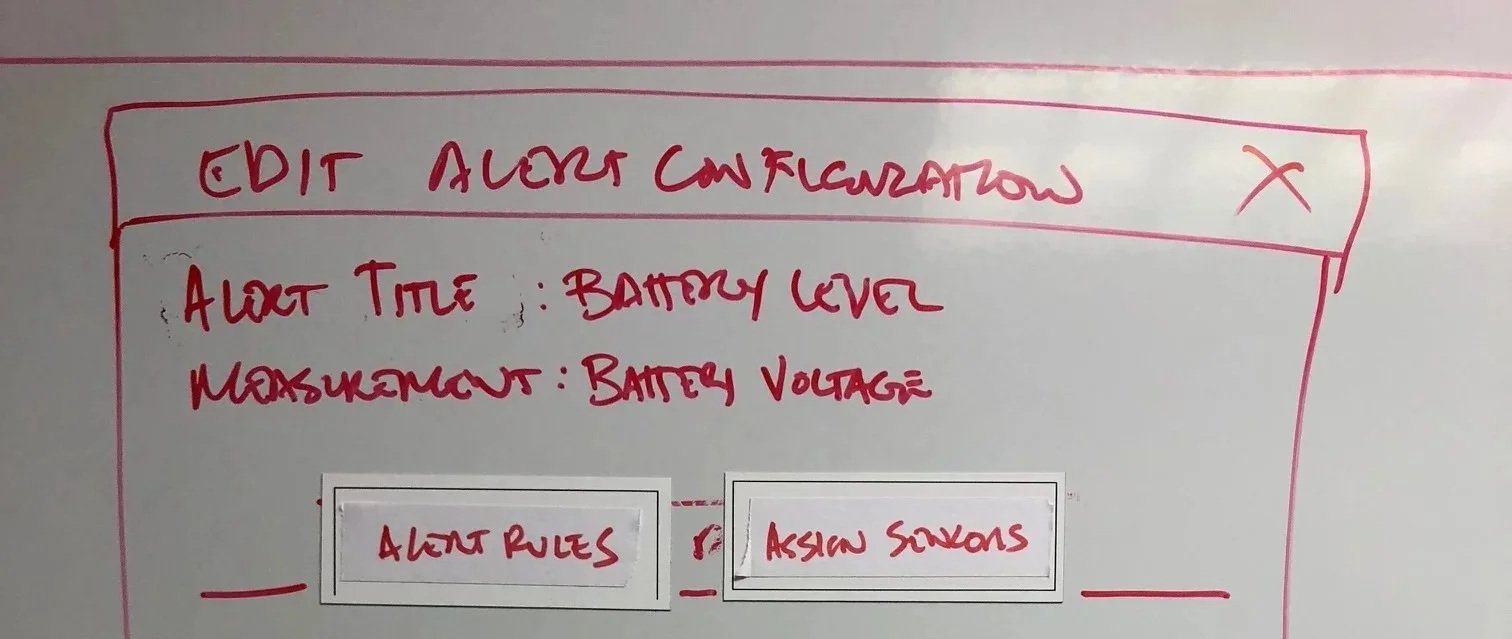 EDIT ALERT CONFIGURATION X
ALERT TITLE : BATTERY LEVEL
MEASUREMENT : BATTERY VOLTAGE
ALERT RULES ASSIGN SENSORS